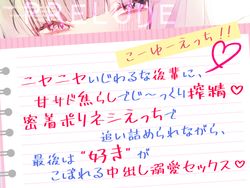 PRELUDE
こーゆーえっち!!
ニヤニヤいじわるな後輩に、
甘サド焦らしでじ〜っくり搾精♡
密着ポリネシえっちで
追い詰められながら、
最後は“好き”が
こぼれる中出し溺愛セックス♡